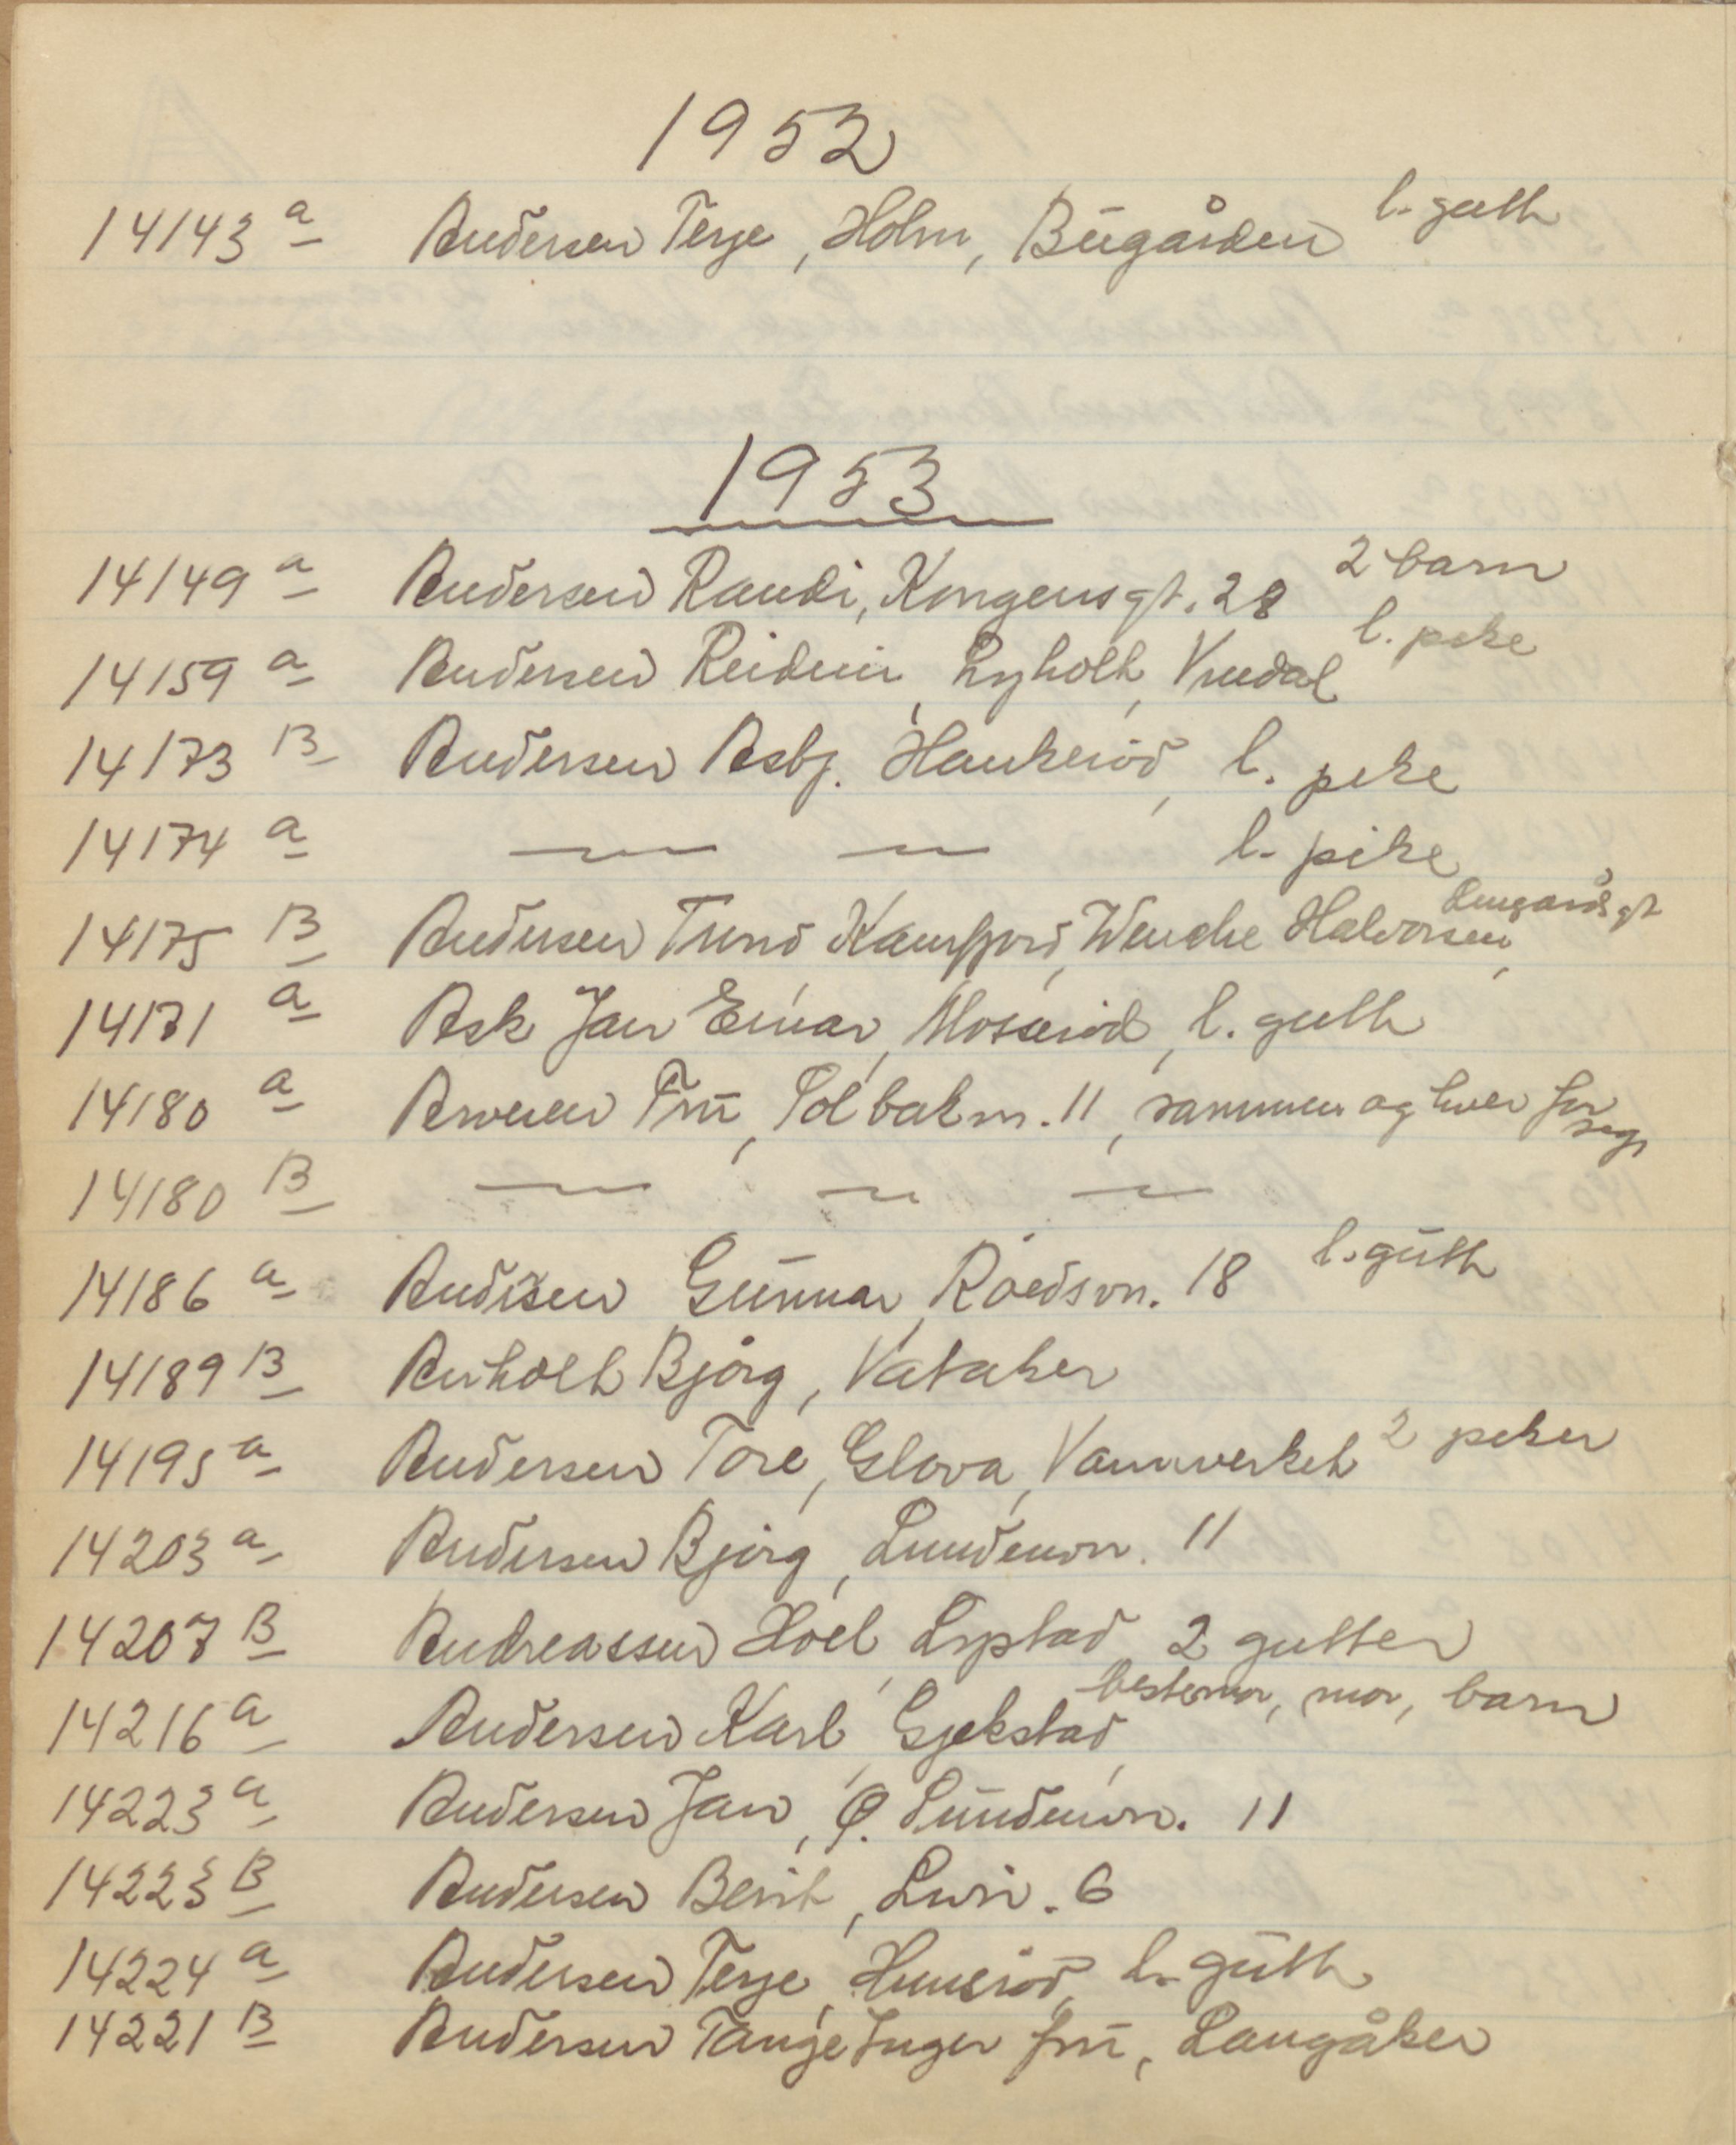 1952
14143 a Andersen Terje, Holm, Bugården l. gutt
1953
14149 a Andersen Randi, Kongensgt. 28 2 barn
14159 a Andersen Reidun, Lyholt, Vindal l. pike
14173 B Andersen Asbj. Haukerød, l. pike
14174 a — — l. pike
14175 B Andersen Trond Kamfjord, Wenche Halvorsen, Lingårdsgt
14171 a Ask Jan Einar, Moserød, l. gutt
14180 a Arvesen Fru, Solbakv. 11, sammen og hver for seg
14180 B — — —
14186 a Andersen Gunnar,Råedsvn. 18 l. gutt
14189 B Anholt Bjørg, Vataker
14195 a Andersen Tore, Glava, Vannverket 2 piker
14203 a Andersen Bjørg, Lundenvn. 11
14207 B Andreassen Hoel, Lystad 2 gutter
14216 a Andersen Karl, Gjekstad, bestemor, mor, barn
14223 a Andersen Jan, Ø. Lundenvn. 11
14223 B Andersen Berit, 6
14224 a Andersen Terje, Hunsrød, l. gutt
14221 B Andersen Tange Inger fru, Langåker